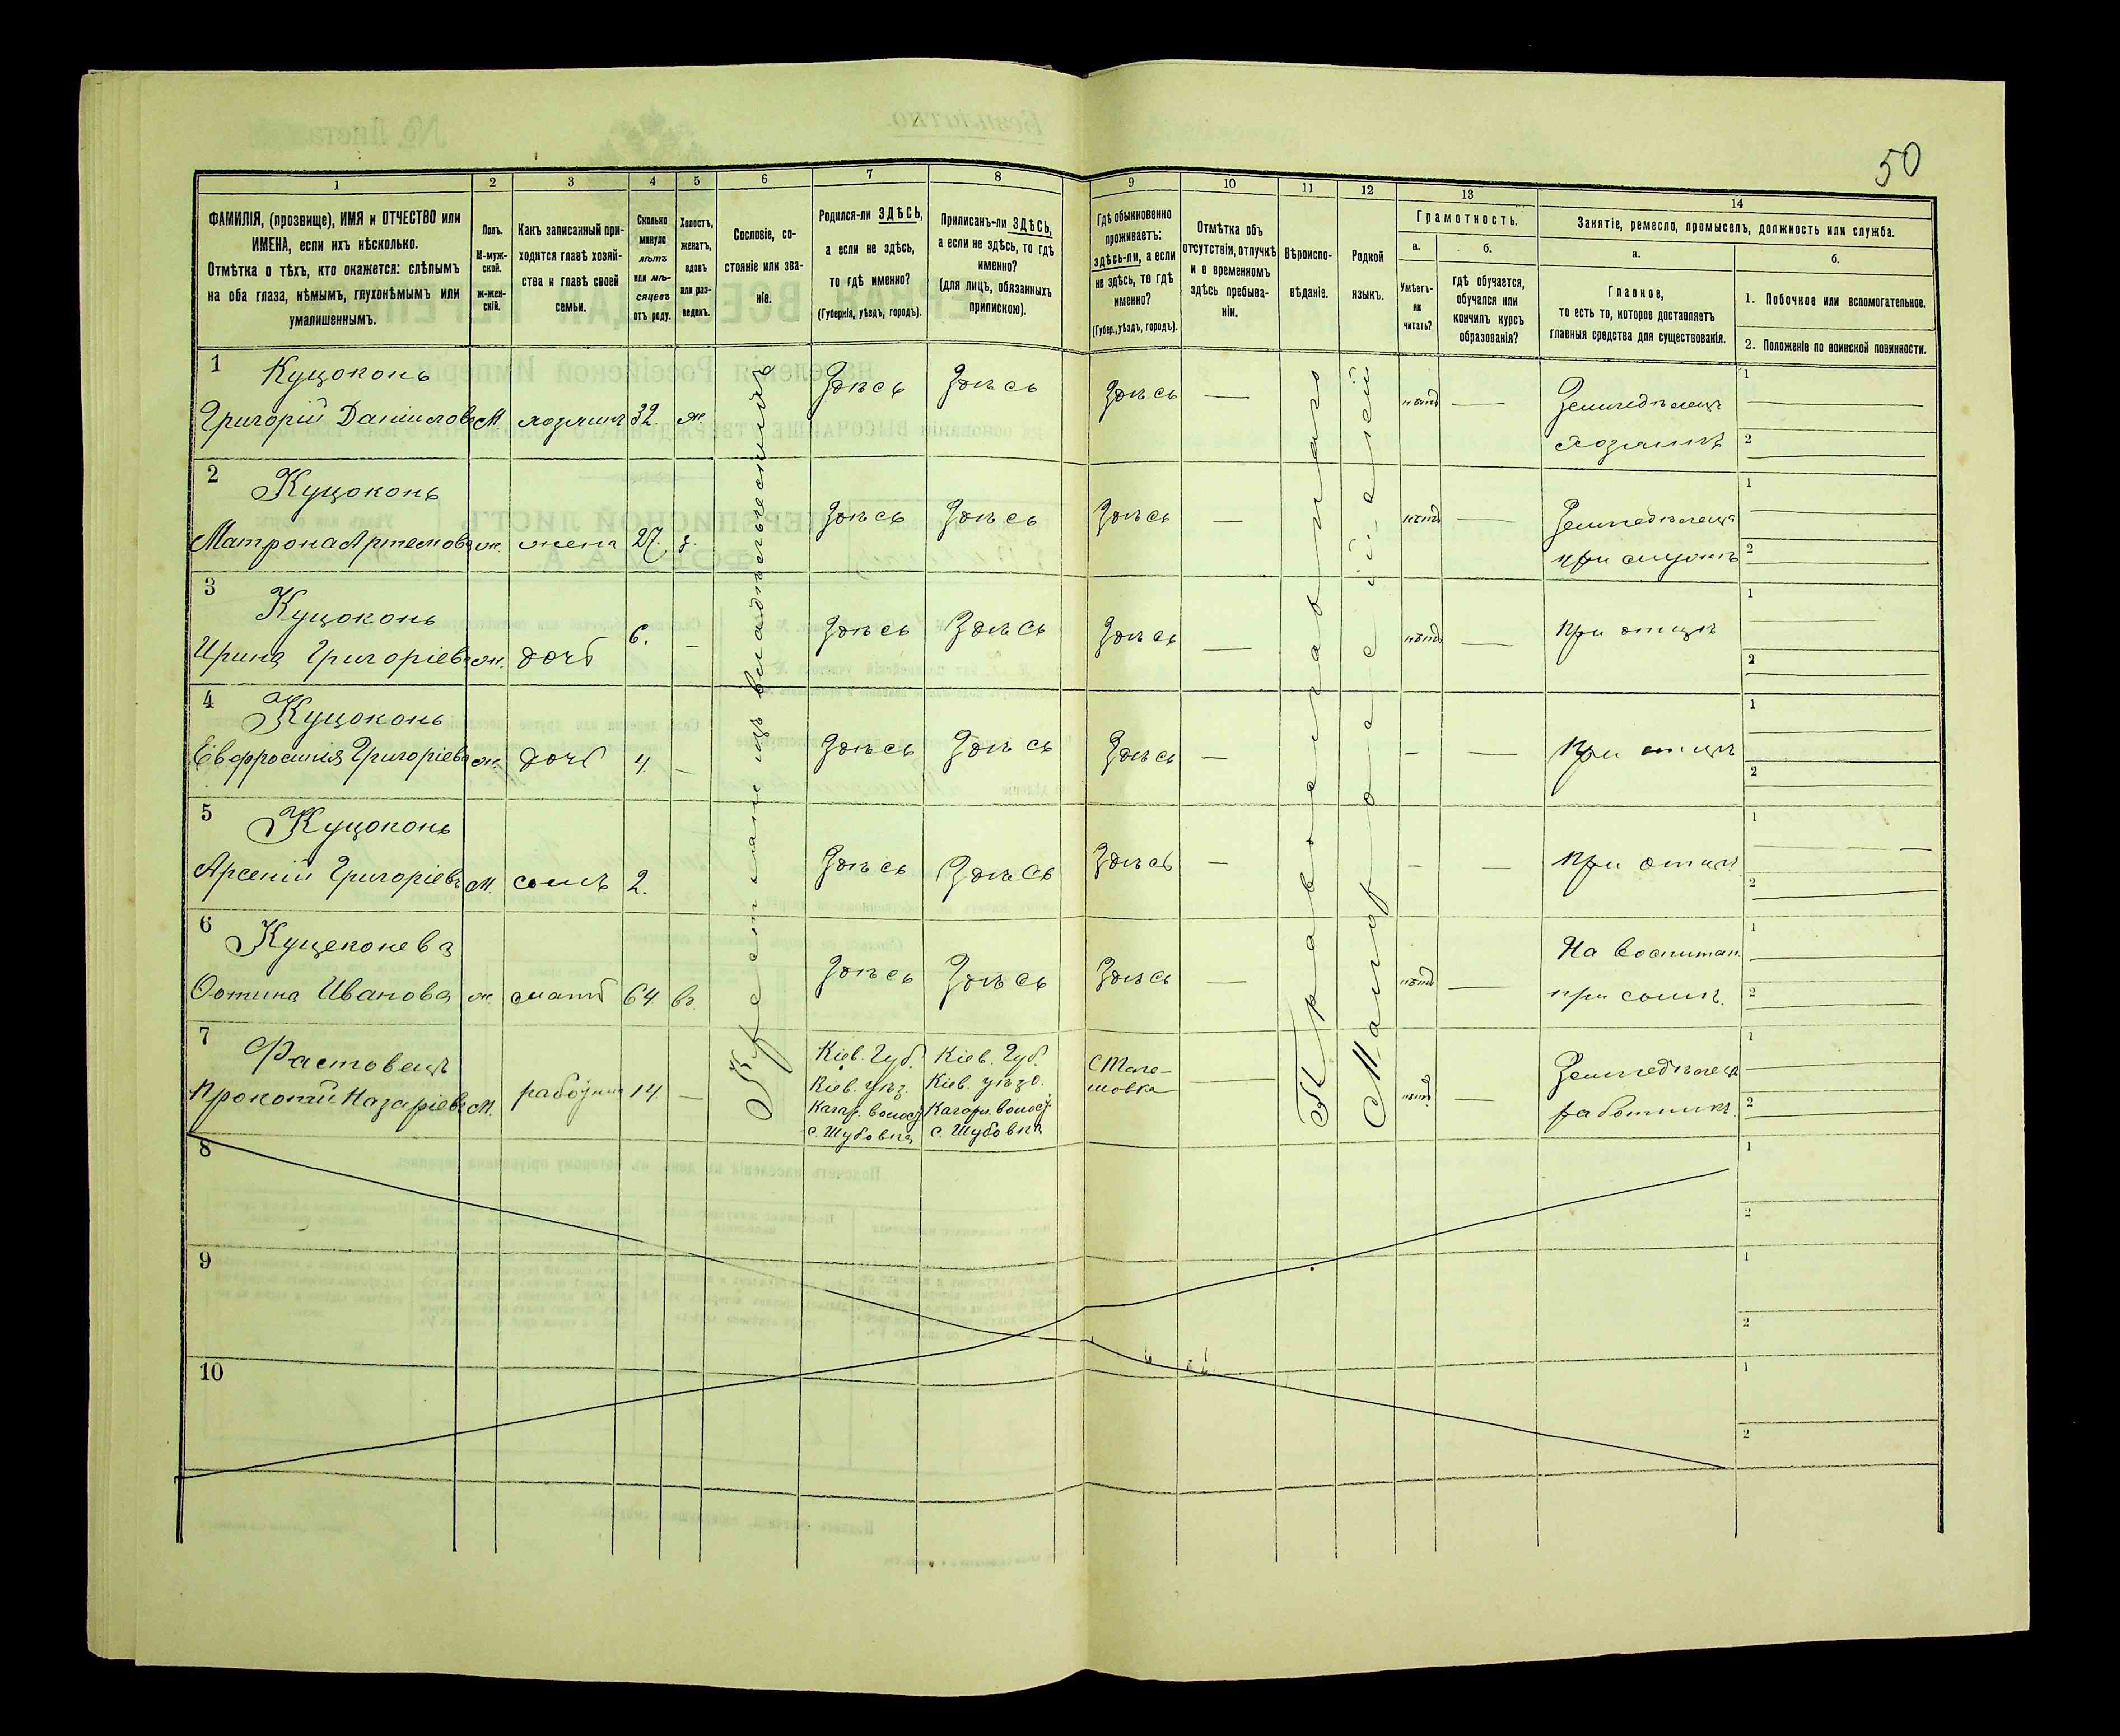 50
1
2
3
4
5
6
7
8
9
10
11
12
13
14
ФАМИЛІЯ, (прозвище), ИМЯ и ОТЧЕСТВО или
ИМЕНА, если ихъ нѣсколько.
Отмѣтка о тѣхъ, кто окажется: слѣпымъ
на оба глаза, нѣмымъ, глухонѣмымъ или
умалишеннымъ.
Полъ.
М-муж-
ской.
Ж-жен-
скій.
Какъ записанный при-
ходится главѣ хозяй-
ства и главѣ своей
семьи.
Сколько
минуло
лѣтъ
или мѣ-
сяцевъ
отъ роду.
Холостъ,
женатъ,
вдовъ
или раз-
веденъ.
Сословіе, со-
стояніе или зва-
ніе.
Родился-ли ЗДѢСЬ,
а если не здѣсь,
то гдѣ именно?
(Губернія, уѣздъ, городъ).
Приписанъ-ли ЗДѢСЬ,
а если не здѣсь, то гдѣ
именно?
(для лицъ, обязанныхъ
припискою).
Гдѣ обыкновенно
проживаетъ:
здѣсь-ли, а если
не здѣсь, то гдѣ
именно?
(Губер., уѣздъ, городъ).
Отмѣтка объ
отсутствіи, отлучкѣ
и о временномъ
здѣсь пребыва-
ніи.
Вѣроиспо-
вѣданіе.
Родной
языкъ.
Грамотность.
а.
б.
Умѣетъ-
ли
читать?
гдѣ обучается,
обучался или
кончилъ курсъ
образованія?
Занятіе, ремесло, промыселъ, должность или служба.
а.
б.
Главное,
то есть то, которое доставляетъ
главныя средства для существованія.
1. Побочное или вспомогательное.
2. Положеніе по воинской повинности.
Крестьянинъ владѣльческій
Православнаго
Малороссійскій
1 Куцоконь
Григорій Даніиловъ М хозяинъ 32. ж.
Здѣсь Здѣсь Здѣсь — нѣтъ —
Земледѣлецъ
хозяинъ
1
2
2 Куцоконь
Матрона Артемова ж. жена 27. з.
Здѣсь Здѣсь Здѣсь — нѣтъ —
Земледѣлецъ
при мужѣ
1
2
3 Куцоконь
Ирина Григоріева ж. дочь 6. —
Здѣсь Здѣсь Здѣсь — нѣтъ —
при отцѣ
1
2
4 Куцоконь
Евфросинія Григоріева ж. дочь 4. —
Здѣсь Здѣсь Здѣсь — — —
При отцѣ
1
2
5 Куцоконь
Арсеній Григоріевъ М. сынъ 2.
Здѣсь Здѣсь Здѣсь — — —
При отцѣ
1
2
6 Куцеконева
Иванова ж. мать 64. вд.
Здѣсь Здѣсь Здѣсь — нѣтъ —
На воспитан.
при сынѣ.
1
2
7 Фастовецъ
Прокопій Назаріевъ М. 14. —
Кіев. Губ. Кіев. Губ.
Кіев. уѣз. Кіев. уѣзд.
Кагар. волос. Кагарл. волос.
с. Шубовка с. Шубовка
— нѣтъ. —
Земледѣлецъ
работникъ.
1
2
8
1
2
9
1
2
10
1
2